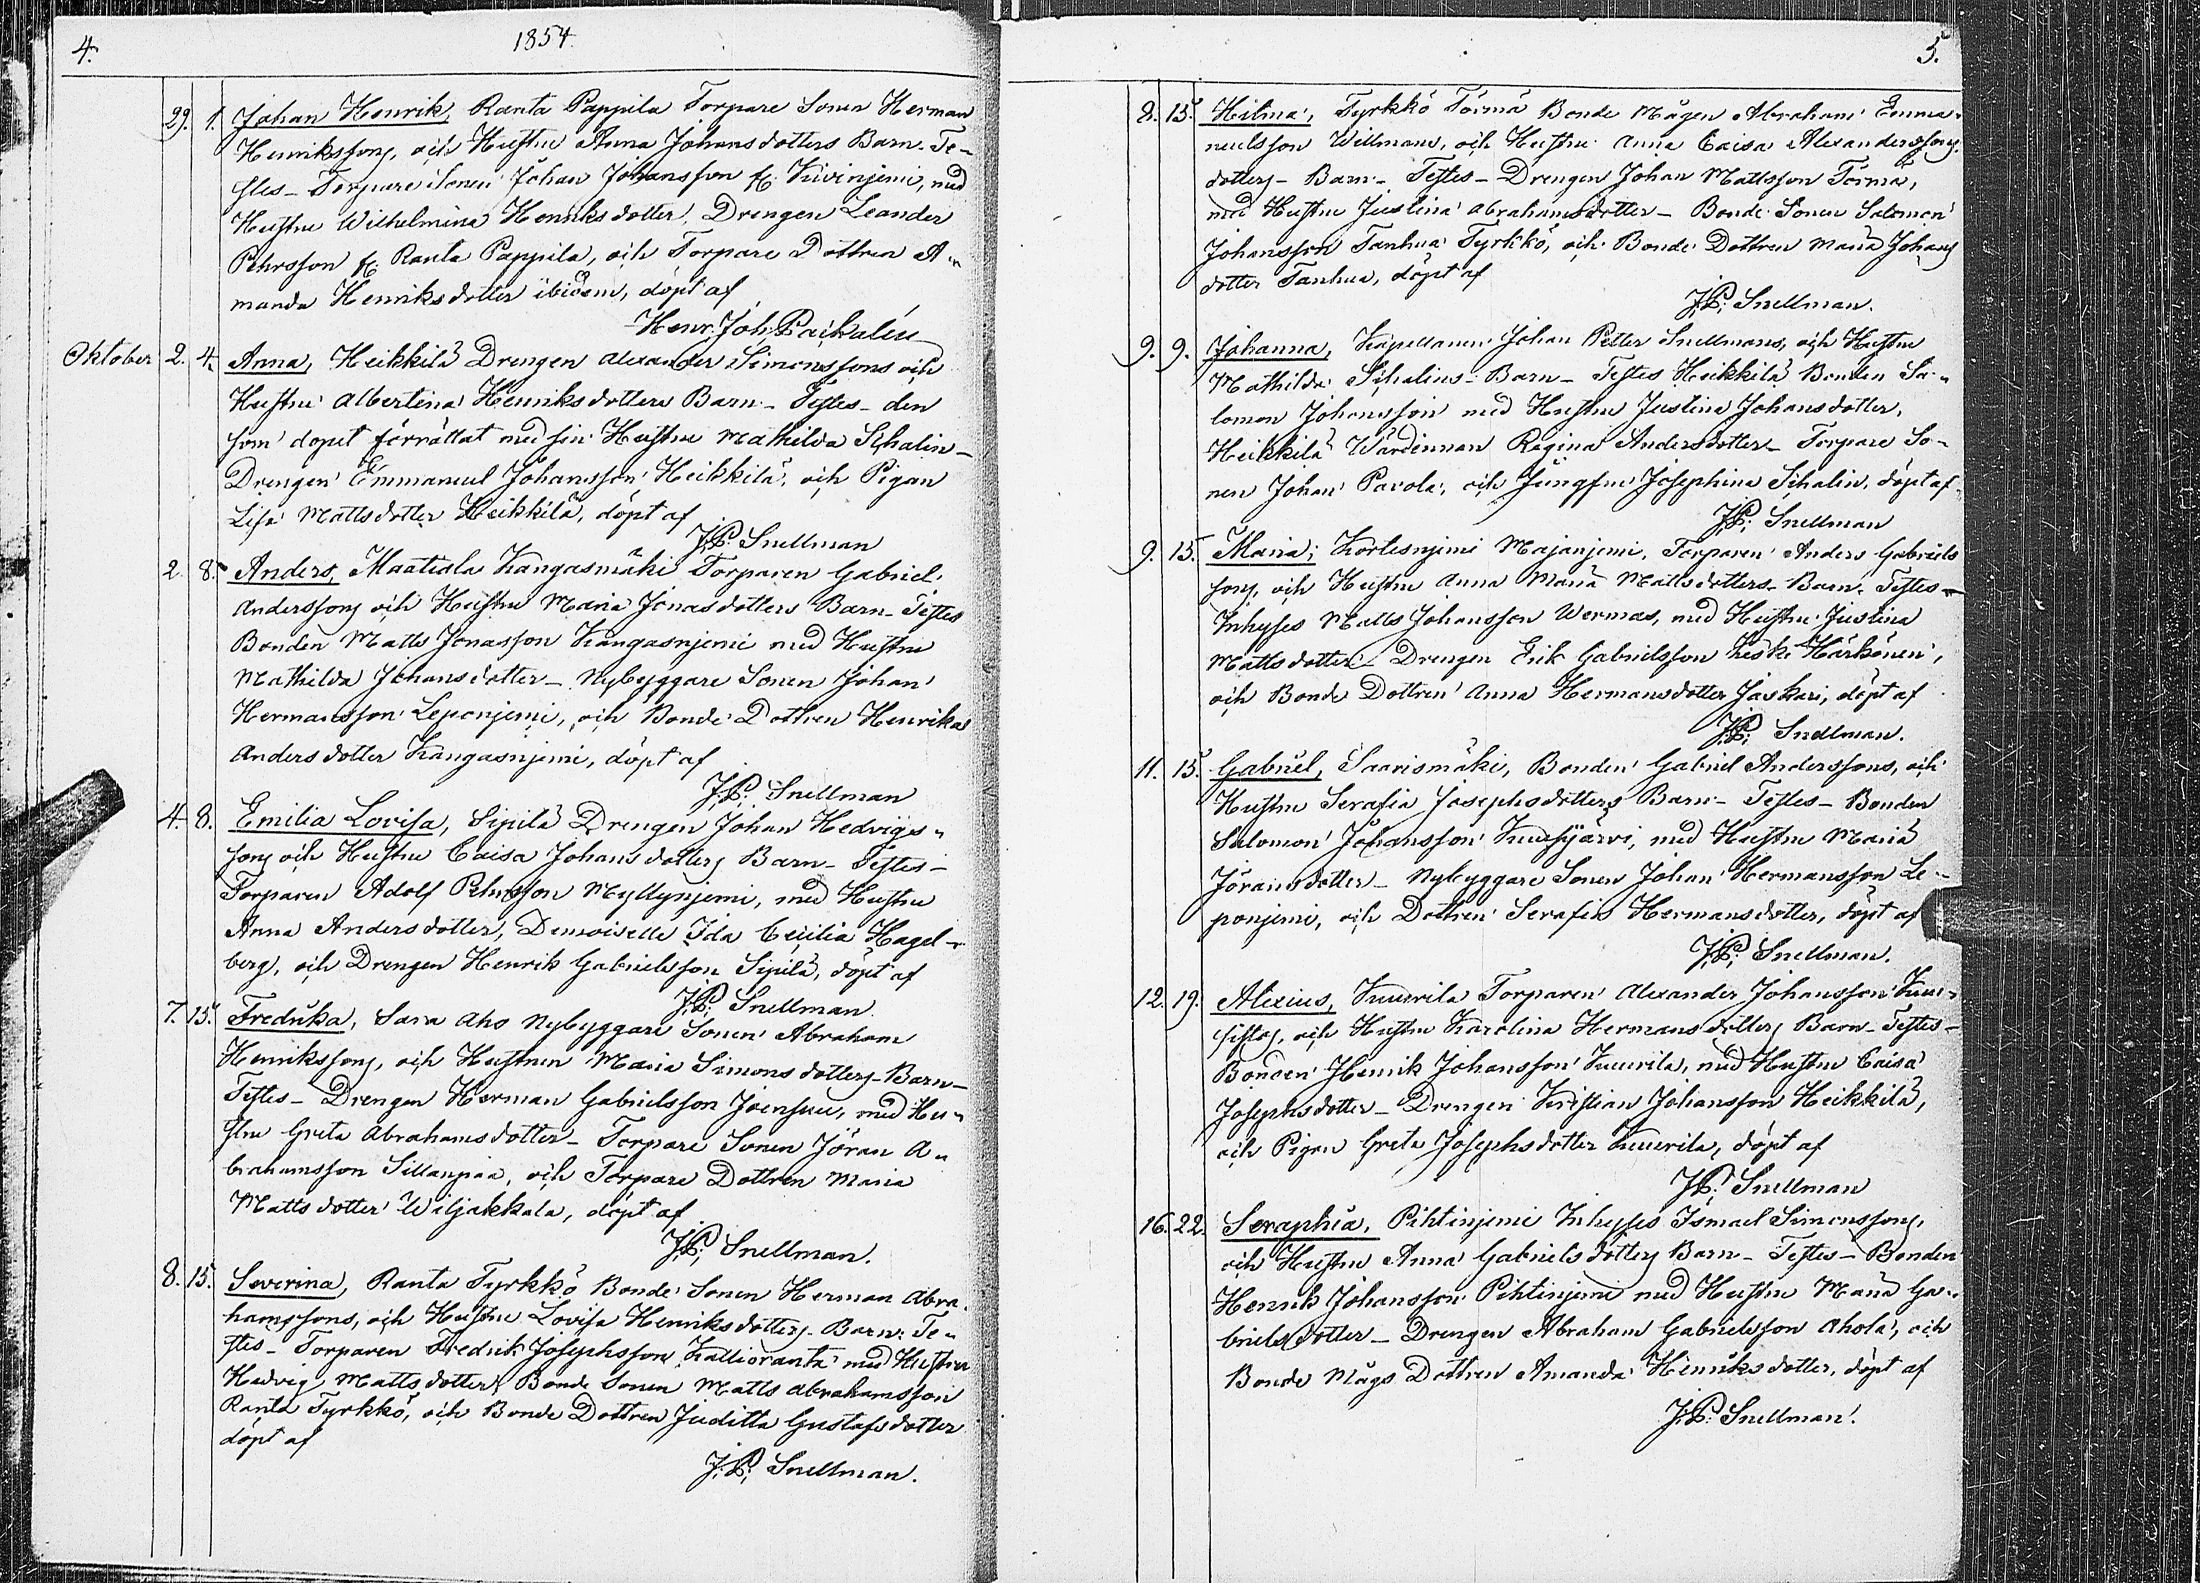 4.
1854.
29. 1. Johan Henrik, Ranta Pappila Torpare Sonen Herman
Henrikssons, och Hustru Anna Johansdotters Barn. Te-
stes- Torpare Sonen Johan Johansson fr. Kivinjemi, med
Hustru Wilhelmina Henriksdotter, Drengen Leander
Pehrsson fr. Ranta Pappila, och Torpare Dottren A-
manda Henriksdotter ibidem, döpt af
Henr. Joh.
Oktober 2. 4. Anna, Heikkilä Drengen Alexander Simonssons och
Hustru Albertina Henriksdotters Barn- Testes- den
som dopet förrättat med sin Hustru Mathilda
Drengen Emmanuel Johansson Heikkilä, och Pigan
Lisa Mattsdotter Heikkilä, döpt af
J.P. Snellman
2. 8. Anders, Maatiala Kangasmäki Torparen Gabriel
Anderssons och Hustru Maria Jonasdotters Barn- Testes
Bonden Matts Jonasson Kangasnjemi med Hustru
Mathilda Johansdotter- Nybyggare Sonen Johan
Hermansson Leponjemi, och Bonde Dottren Henrika
Andersdotter Kangasnjemi, döpt af
J.P. Snellman
4. 8. Emilia Lovisa, Sipilä Drengen Johan Hedvigs-
sons och Hustru Caisa Johansdotters Barn- Testes-
Torparen Adolf Pehrsson Myllynjemi, med Hustru
Anna Andersdotter, Demoiselle Ida Cecilia Hagel-
berg, och Drengen Henrik Gabrielsson Sipilä, döpt af
J.P. Snellman.
7. 15. Fredrika, Sara Aho Nybyggare Sonen Abraham
Henrikssons, och Hustrun Maria Simonsdotters- Barn-
Testes- Drengen Herman Gabrielsson Joensuu, med Hu-
stru Greta Abrahamsdotter- Torpare Sonen Jöran A-
brahamsson Sillanpää, och Torpare Dottren Maria
Mattsdotter Wiljakkala, döpt af
J.P. Snellman.
8. 15. Severina, Ranta Tyrkkö Bonde Sonen Herman Abra-
hamssons, och Hustru Lovisa Henriksdotters- Barn: Te-
stes- Torparen Fredrik Josephsson Kallioranta med Hustru
Hedvig Mattsdotter, Bonde Sonen Matts Abrahamsson
Ranta Tyrkkö, och Bonde Dottren Juditta Gustafsdotter
döpt af
J.P. Snellman.
5.
8. 15. Hilma, Tyrkkö Törmä Bonde Mågen Abraham Emma-
nuelsson Willmans, och Hustru Anna Caisa Alexandersons
dotters- Barn- Testes- Drengen Johan Mattsson Törmä,
med Hustru Justina Abrahamsdotter- Bonde Sonen Salomon
Johansson Tanhua Tyrkkö, och Bonde Dottren Maria Johans
dotter Tanhua, döpt af
J.P. Snellman.
9. 9. Johanna, Kapellanen Johan Petter Snellmans, och Hustru
Mathilda Barn- Testes Heikkilä Bonden Sa-
lomon Johansson med Hustru Justina Johansdotter,
Heikkilä Wärdinnan Regina Andersdotter- Torpare So-
nen Johan Pavola, och Jungfru Josephina döpt af
J.P. Snellman
9. 15. Maria, Kortesnjemi Majanjemi, Torparen Anders Gabriels
sons, och Hustru Anna Maria Mattsdotters- Barn. Testes-
Inhyses Matts Johansson Wermas, med Hustru Justina
Mattsdotter- Drengen Erik Gabrielsson Keski Härkönen,
och Bonde Dottren Anna Hermansdotter Jaskari, döpt af
J.P. Snellman.
11. 15. Gabriel, Saarismäki, Bonden Gabriel Anderssons, och
Hustru Serafia Josephsdotters Barn- Testes- Bonden
Salomon Johansson Kuusjärvi, med Hustru Maria
Jöransdotter- Nybyggare Sonen Johan Hermansson Le-
ponjemi, och Dottren Serafia Hermansdotter, döpt af
J.P. Snellman.
12. 19. Alexius, Kuurila Torparen Alexander Johansson
och Hustru Karolina Hermansdotters Barn- Testes-
Bonden Henrik Johansson Kuurila, med Hustru Caisa
Josephsdotter- Drengen Kristian Johansson Heikkilä,
och Pigan Greta Josephsdotter Kuurila, döpt af
J.P. Snellman
16. 22. Seraphia, Pihtinjemi Inhyses Ismael Simonssons,
och Hustru Anna Gabrielsdotters Barn- Testes- Bonden
Henrik Johansson Pihtinjemi med Hustru Maria Ga-
brielsdotter- Drengen Abraham Gabrielsson Ahola, och
Bonde Mågs Dottren Amanda Henriksdotter, döpt af
J.P. Snellman.